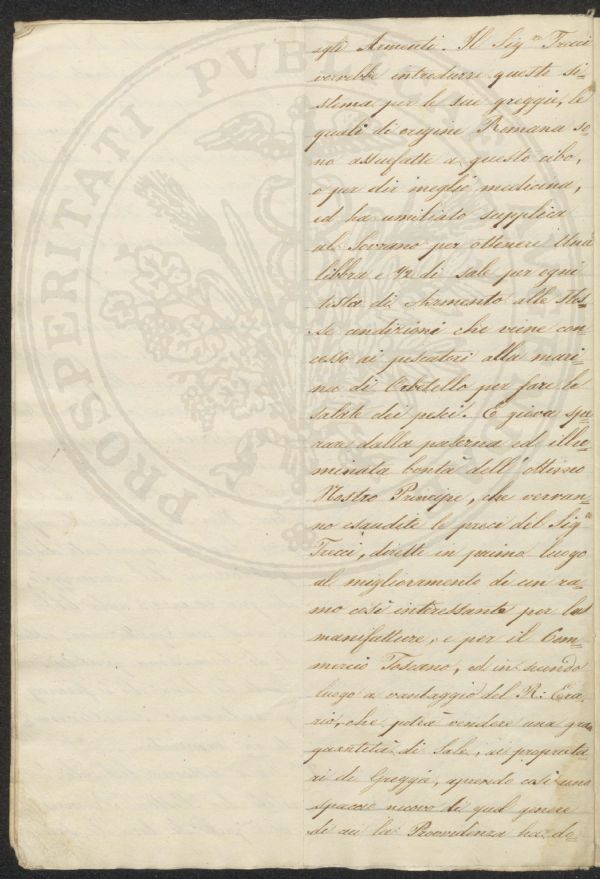 agli Armenti. Il Sig.re Tricci
vorrebbe introdurre questo si=
stema per le sue greggie, le
quali di origine Romana so=
no assuefatte a questo cibo,
o per dir meglio medicina,
ed ha umiliato supplica
al Sovrano per ottenere una
libbra e 1/2 di sale per ogni
testa di Armento alle stes=
se condizioni che viene con
cesso ai pescatori alla mari=
na di Orbetello per fare le
salate dei pesci. E giova spe=
rare dalla paterna ed illu=
minata bontà dell' ottimo
Nostro Principe, che verran=
no esaudite le preci del Sig.re
Tricci, dirette in primo luogo
al miglioramento di un ra=
mo così interessante per le
manifatture, e per il Com=
mercio Toscano, ed in secondo
luogo a vantaggio del R: Era=
rio, che potrà vendere una gran
quantità di Sale, ai proprieta=
ri di Greggie, aprendo così uno
spaccio nuovo di quel genere
di cui la Provvidenza ha do=
PROSPERITATI PUBLICAE